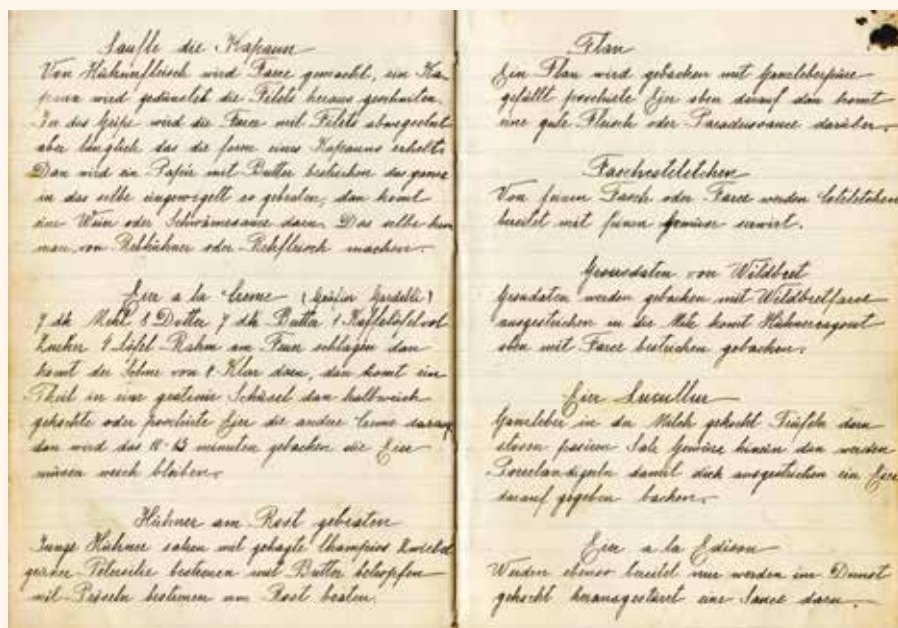 Saufle die Kapaun
Von Hühnnfleisch wird Farce gemacht, ein Ka-
paun wird gedünstet die Filets heraus geschniten.
In das Geripe wird die Farce mit Filets
aber länglich das die form eines Kapauns erhelt.
Dan wird ein Papir mit Butter bestrichen das ganse
in das selbe eingewigelt so gebraten, dan komt
eine Wein oder Schwämesauce dazu. Das selbe kan
man von Rebhühner oder Rehfleisch machen.
Eier a la Creme (Gräfin Gardelli)
7 dk Mehl 8 Dotter 7 dk Butter 1 Kaffelöfelvol
Zucker 4 Löfel Rahm am Feuer schlagen dan
komt der Schne von Klar dazu, dan komt ein
Theil in eine Schüsel dan halbweich
gekochte oder poschirte Eier die andere Creme darauf
dan wird das 10-15 minuten gebacken die Eier
müssen weich bleiben.
Hühner am Rost gebraten
Junge Hühner salzen mit gehagte Champios Zwiebel
grüner Petersilie bestreuen mit Butter betropfen
mit Bröseln bestreuen am Rost braten.
Flan
Ein Flan wird gebacken mit Ganzleberpüre
gefüllt poschirte Eier oben darauf dan komt
eine gute Fleisch oder Paradeissauce darüber.
Faschcoteletchen
Von feinen Fasch oder Farce werden Coteletchen
bereitet mit feinen Gemüse servirt.
von Wildbret
werden gebacken mit Wildbretfarce
ausgestrichen in die Mite komt Hühnerragout
oben mit Farce bestrichen gebacken.
Eier Lucullus
Ganzleber in der Milch gekocht Trüfeln dazu
stosen pasiren Salz Gewürze hinein dan werden
Porcelandigeln damit dick ausgestrichen ein Eier
darauf gegeben backen.
Eier a la Edison
Werden ebenso bereitet nur werden im Dunst
gekocht herausgestürzt eine Sauce dazu.